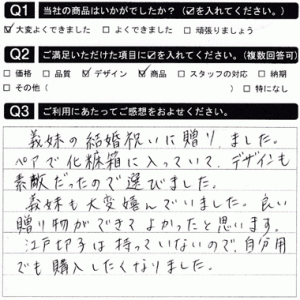 Q1 当社の商品はいかがでしたか？（☑を入れてください。）
☑大変よくできました □よくできました □頑張りましょう
Q2 ご満足いただけた項目に☑を入れてください。（複数回答可）
□価格 □品質 ☑デザイン ☑商品 □スタッフの対応 □納期
□その他（ ） □特になし
Q3 ご利用にあたってご感想をおよせください。
義妹の結婚祝いに贈りました。
ペアで化粧箱に入っていて、デザインも
素敵だったので選びました。
義妹も大変嬉んでいました。良い
贈り物ができてよかったと思います。
江戸切子は持っていないので、自分用
でも購入したくなりました。